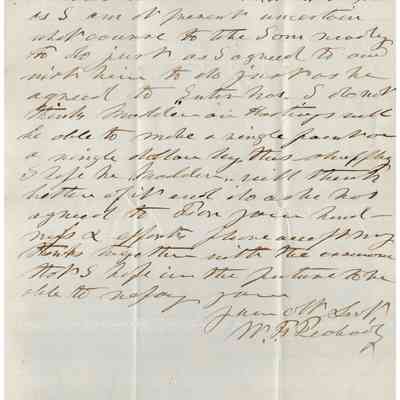 as I am at present uncertain
what course to take I am ready
to do just as I agreed to and
wish him to do just as he
agreed to I do not
think Madden or Hastings will
be able to make a single point or
a single dollar by this shuffling
I hope he will think
better of it and do as he has
agreed to For your kind-
ness & efforts please accept my
thanks together with the assurance
that I hope in the future to be
able to repay you
Your Obt Servt
W. F. Peabody